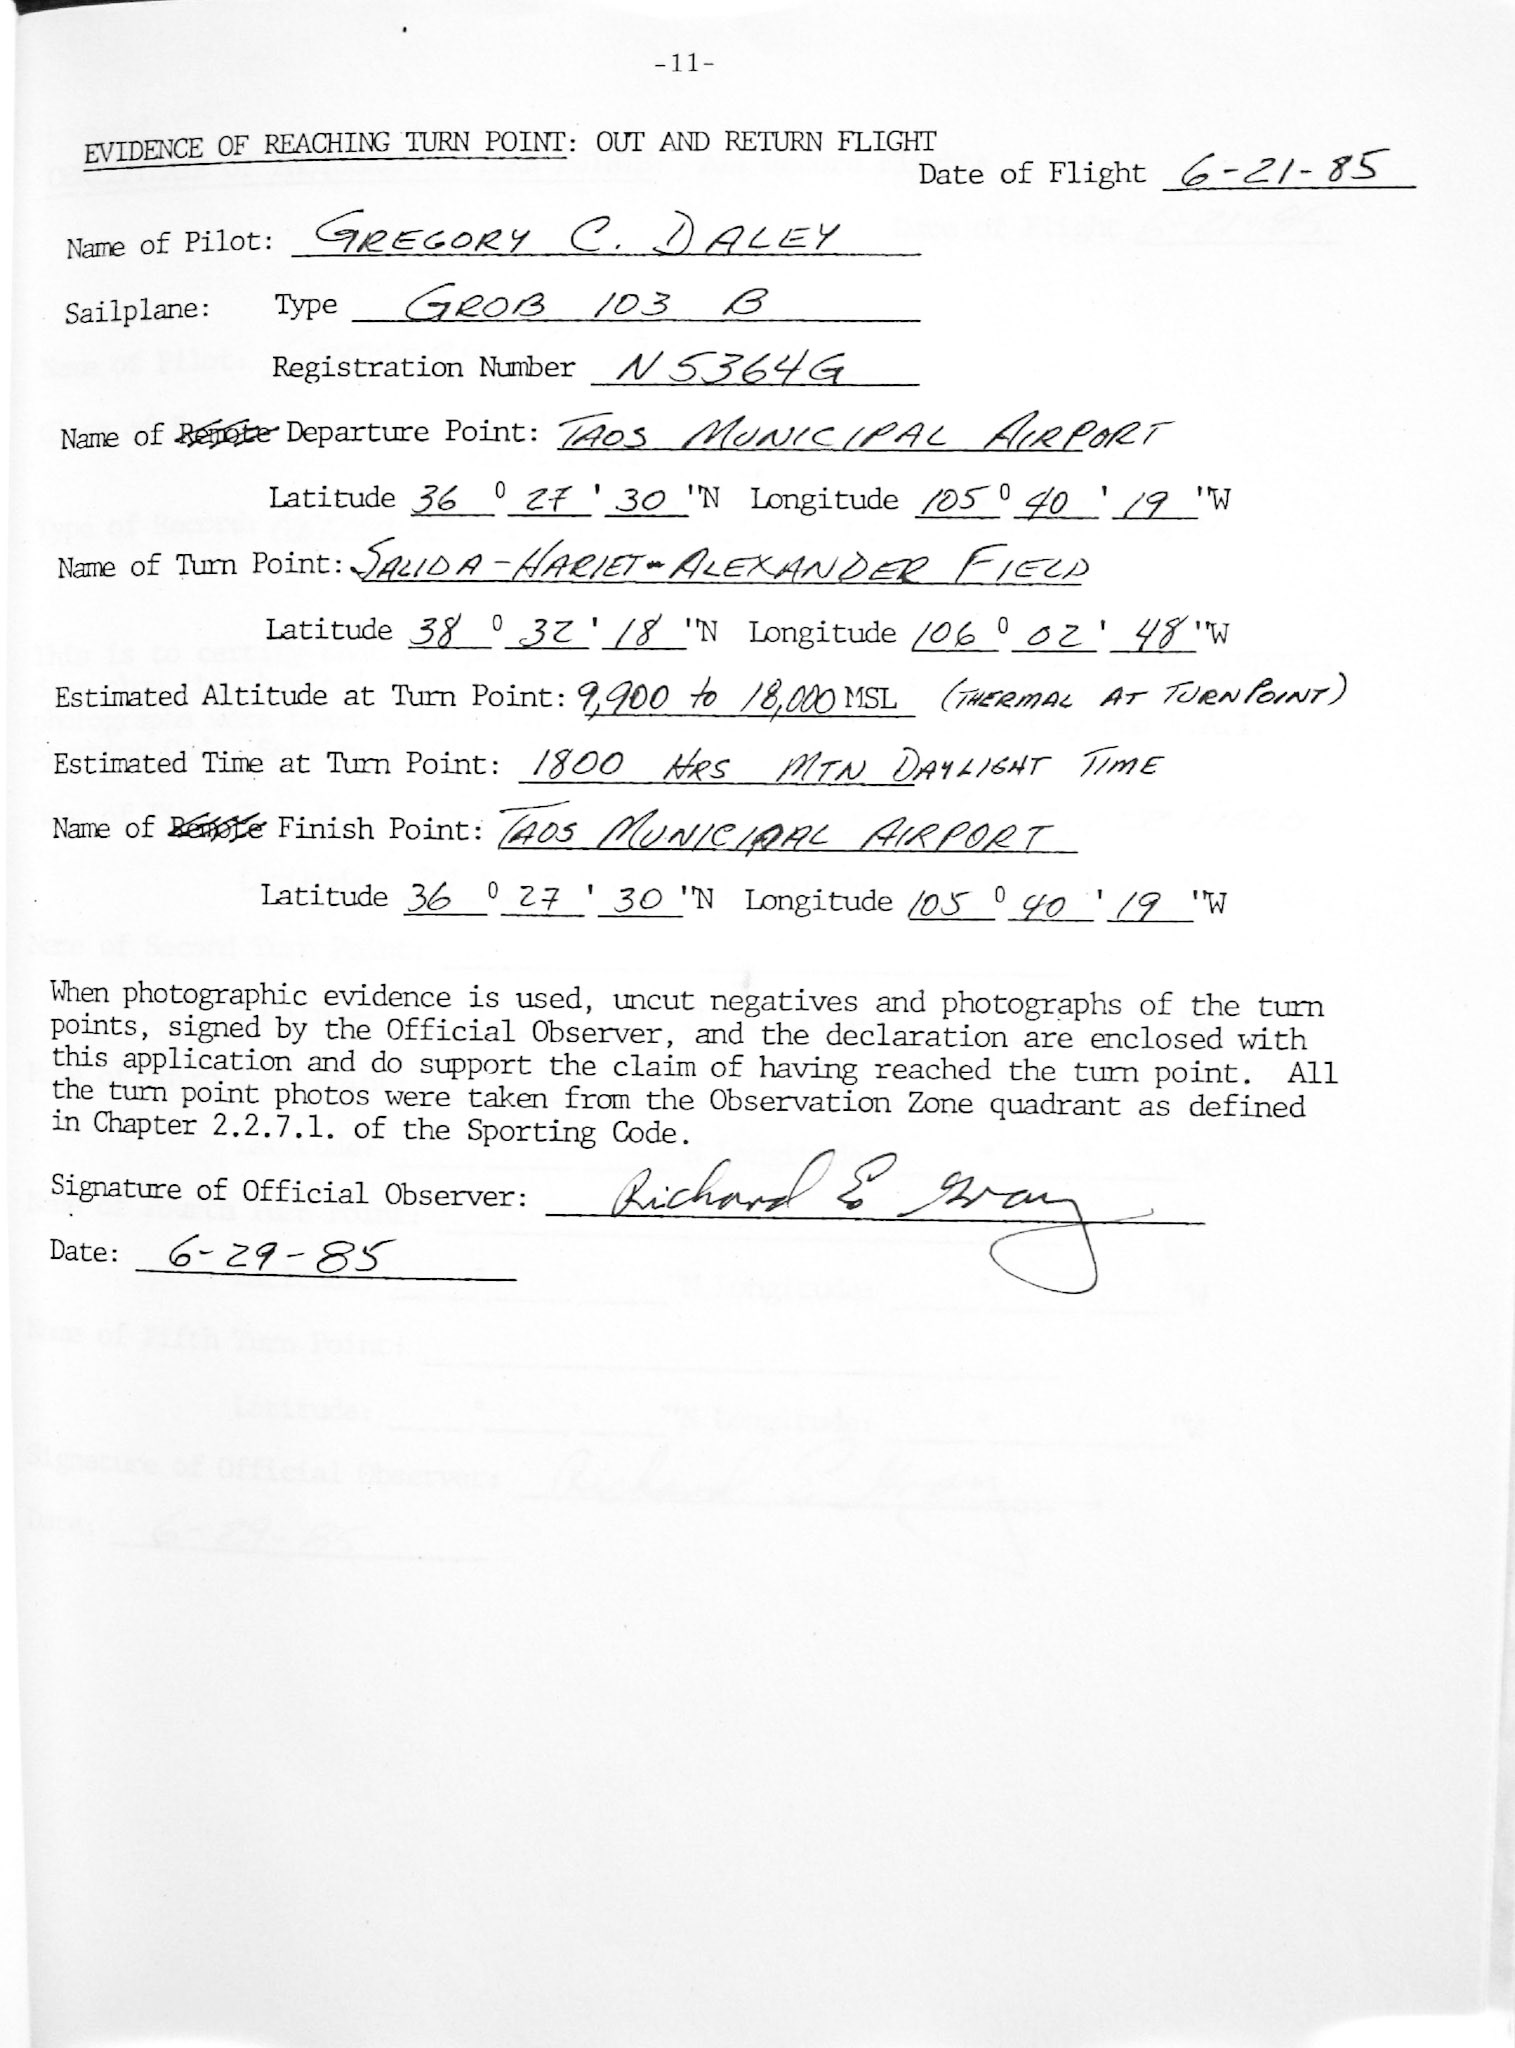 -11-
EVIDENCE OF REACHING TURN POINT: OUT AND RETURN FLIGHT
Date of Flight 6-21-85
Name of Pilot: GREGORY C. DALEY
Sailplane: Type GROB 103 B
Registration Number N5364G
Name of Remote Departure Point: TAOS MUNICIPAL AIRPORT
Latitude 36 ° 27 ' 30 "N Longitude 105 ° 40 ' 19 "W
Name of Turn Point: SALIDA-HARIET-ALEXANDER FIELD
Latitude 38 ° 32 ' 18 "N Longitude 106 ° 02 ' 48 "W
Estimated Altitude at Turn Point: 9,900 to 18,000 MSL (THERMAL AT TURNPOINT)
Estimated Time at Turn Point: 1800 HRS MTN DAYLIGHT TIME
Name of Remote Finish Point: TAOS MUNICIPAL AIRPORT
Latitude 36 ° 27 ' 30 "N Longitude 105 ° 40 ' 19 "W
When photographic evidence is used, uncut negatives and photographs of the turn
points, signed by the Official Observer, and the declaration are enclosed with
this application and do support the claim of having reached the turn point. All
the turn point photos were taken from the Observation Zone quadrant as defined
in Chapter 2.2.7.1. of the Sporting Code.
Signature of Official Observer: Richard E Gray
Date: 6-29-85